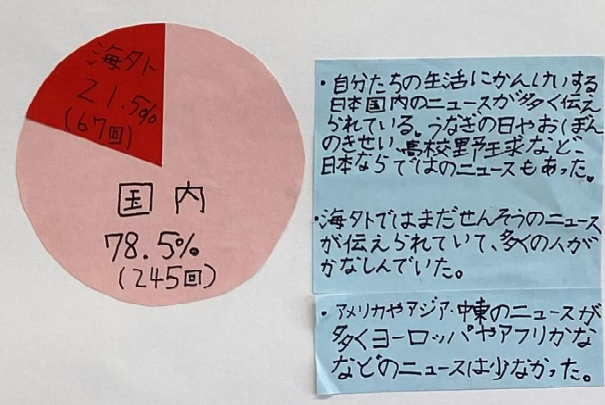 海外
21.5%
(67回)
国内
78.5%
(245回)
・自分たちの生活にかんけいする
日本国内のニュースが多く伝え
られている。うなぎの日やおぼん
のきせい、高校野球など、
日本ならではのニュースもあった。
・海外ではまだせんそうのニュース
が伝えられていて、多くの人が
かなしんでいた。
・アメリカやアジア・中東のニュースが
多くヨーロッパやアフリカな
などのニュースは少なかった。